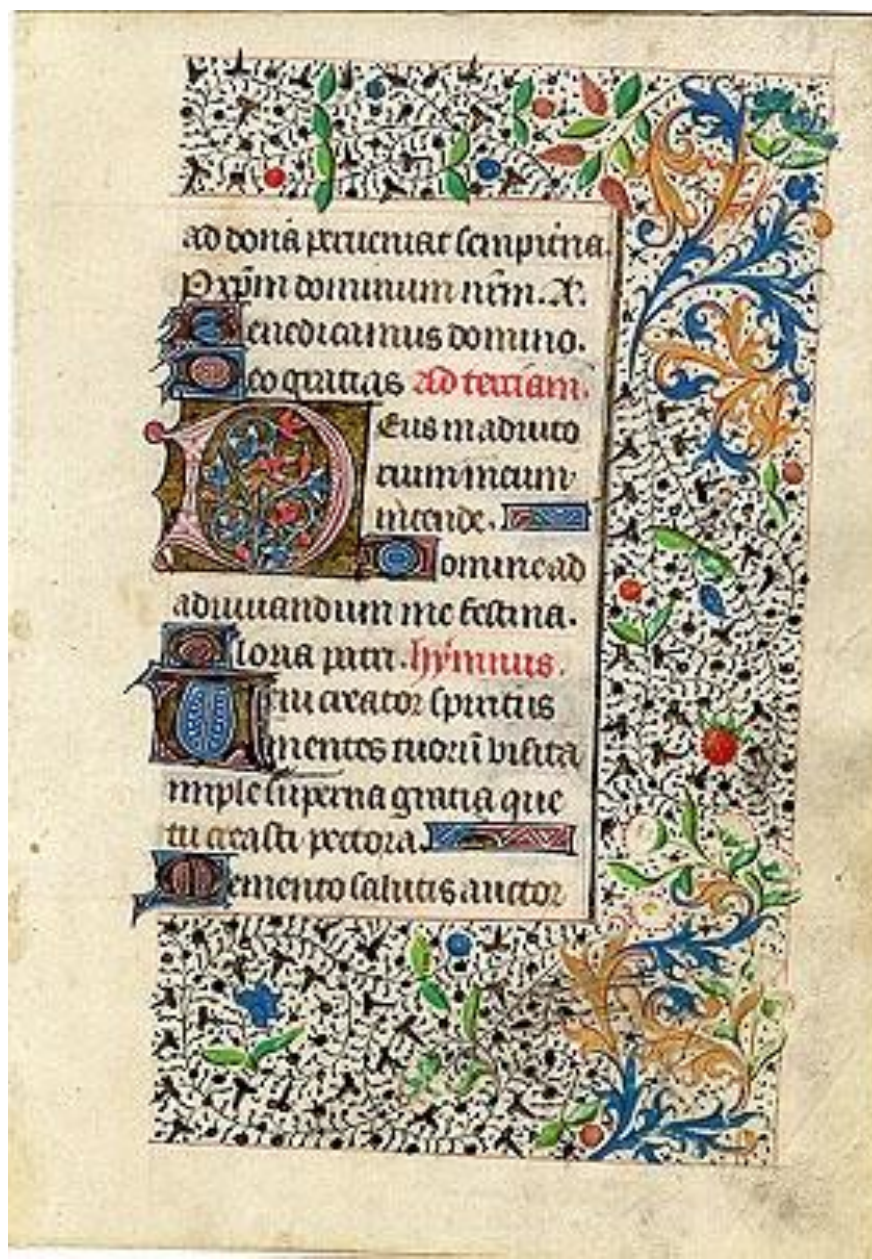 ad dona perueniat sempit̄na.
P xp̄m dominum nr̄m. R.
Benedicamus domino.
Deo gratias ad terciam.
Deus in adiuto
rium meum
intende.
Domine ad
adiuuandum me festina.
Gloria patri. hȳmnus.
Veni creator spiritus
mentes tuorū visita
imple superna gratia que
tu creasti pectora.
Memento salutis auctor